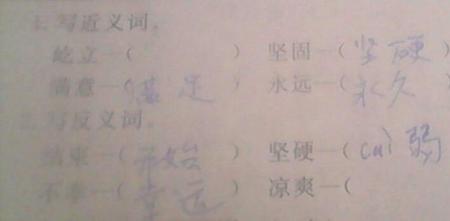 1.写近义词。
屹立—( ) 坚固—(坚硬)
满意—(满足) 永远—(永久)
2.写反义词。
结束—(开始) 坚硬—(cuì弱)
不幸—(幸运) 凉爽—(